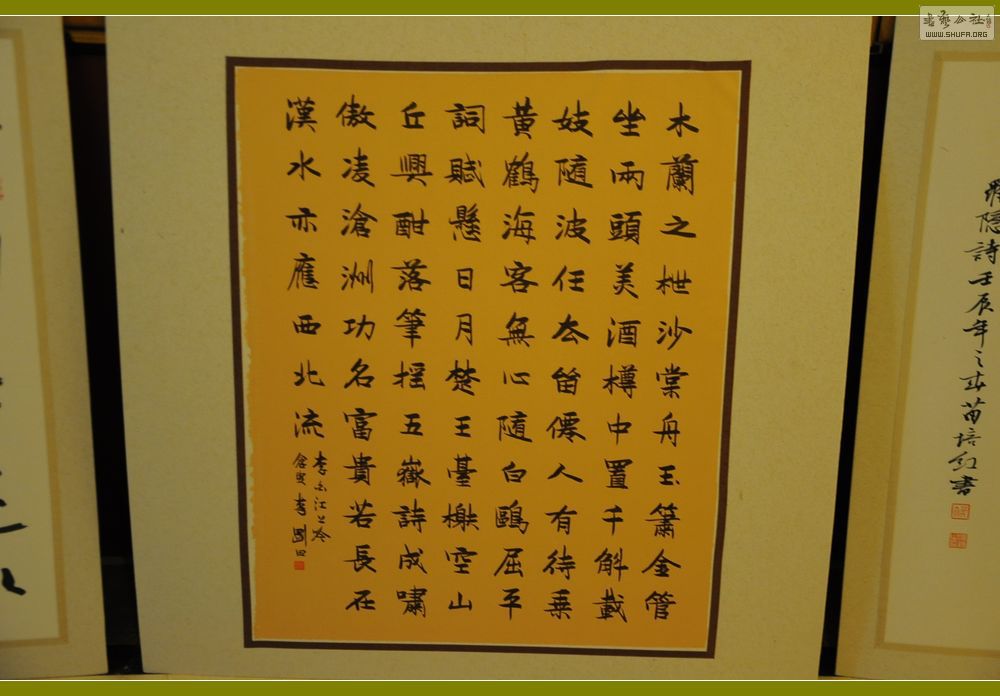 木蘭之枻沙棠舟玉簫金管
坐兩頭美酒樽中置千斛載
妓隨波任去留僊人有待乗
黃鶴海客無心隨白鷗屈平
詞賦懸日月楚王臺榭空山
丘興酣落筆搖五嶽詩成嘯
傲凌滄洲功名富貴若長在
漢水亦應西北流
李白江上吟
隱詩壬辰年之春苗培紅書
WWW.SHUFA.ORG